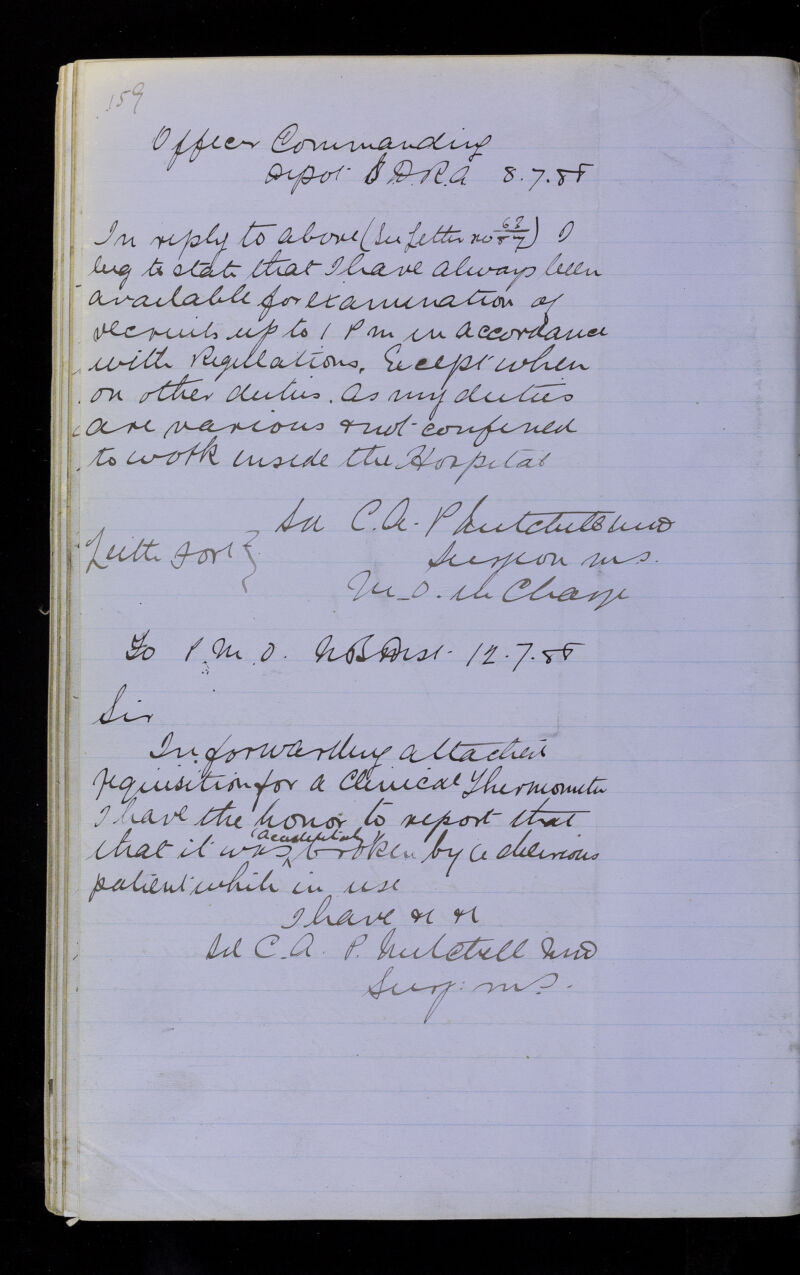 159
Officer Commanding
Depot S.D.R.A 8.7.88
In reply to above (See letter no 63/87) I
beg to state that I have always been
available for examination of
recruits up to 1 P m in accordance
with Regulations. Except when
on other duties. As my duties
are various & not confined
to work inside the Hospital
Sd C.A. P Mitchell MD
Leith Fort } Surgeon M S.
M.O. in Charge
To P.M.O. N B Dist 12.7.88
Sir
In forwarding attached
requisition for a Clinical Thermometer
I have the honor to report that
that it was accidentally broken by a delirious
patient while in use
I have &c &c
Sd C.A. P. Mitchell MD
Surg: M S.